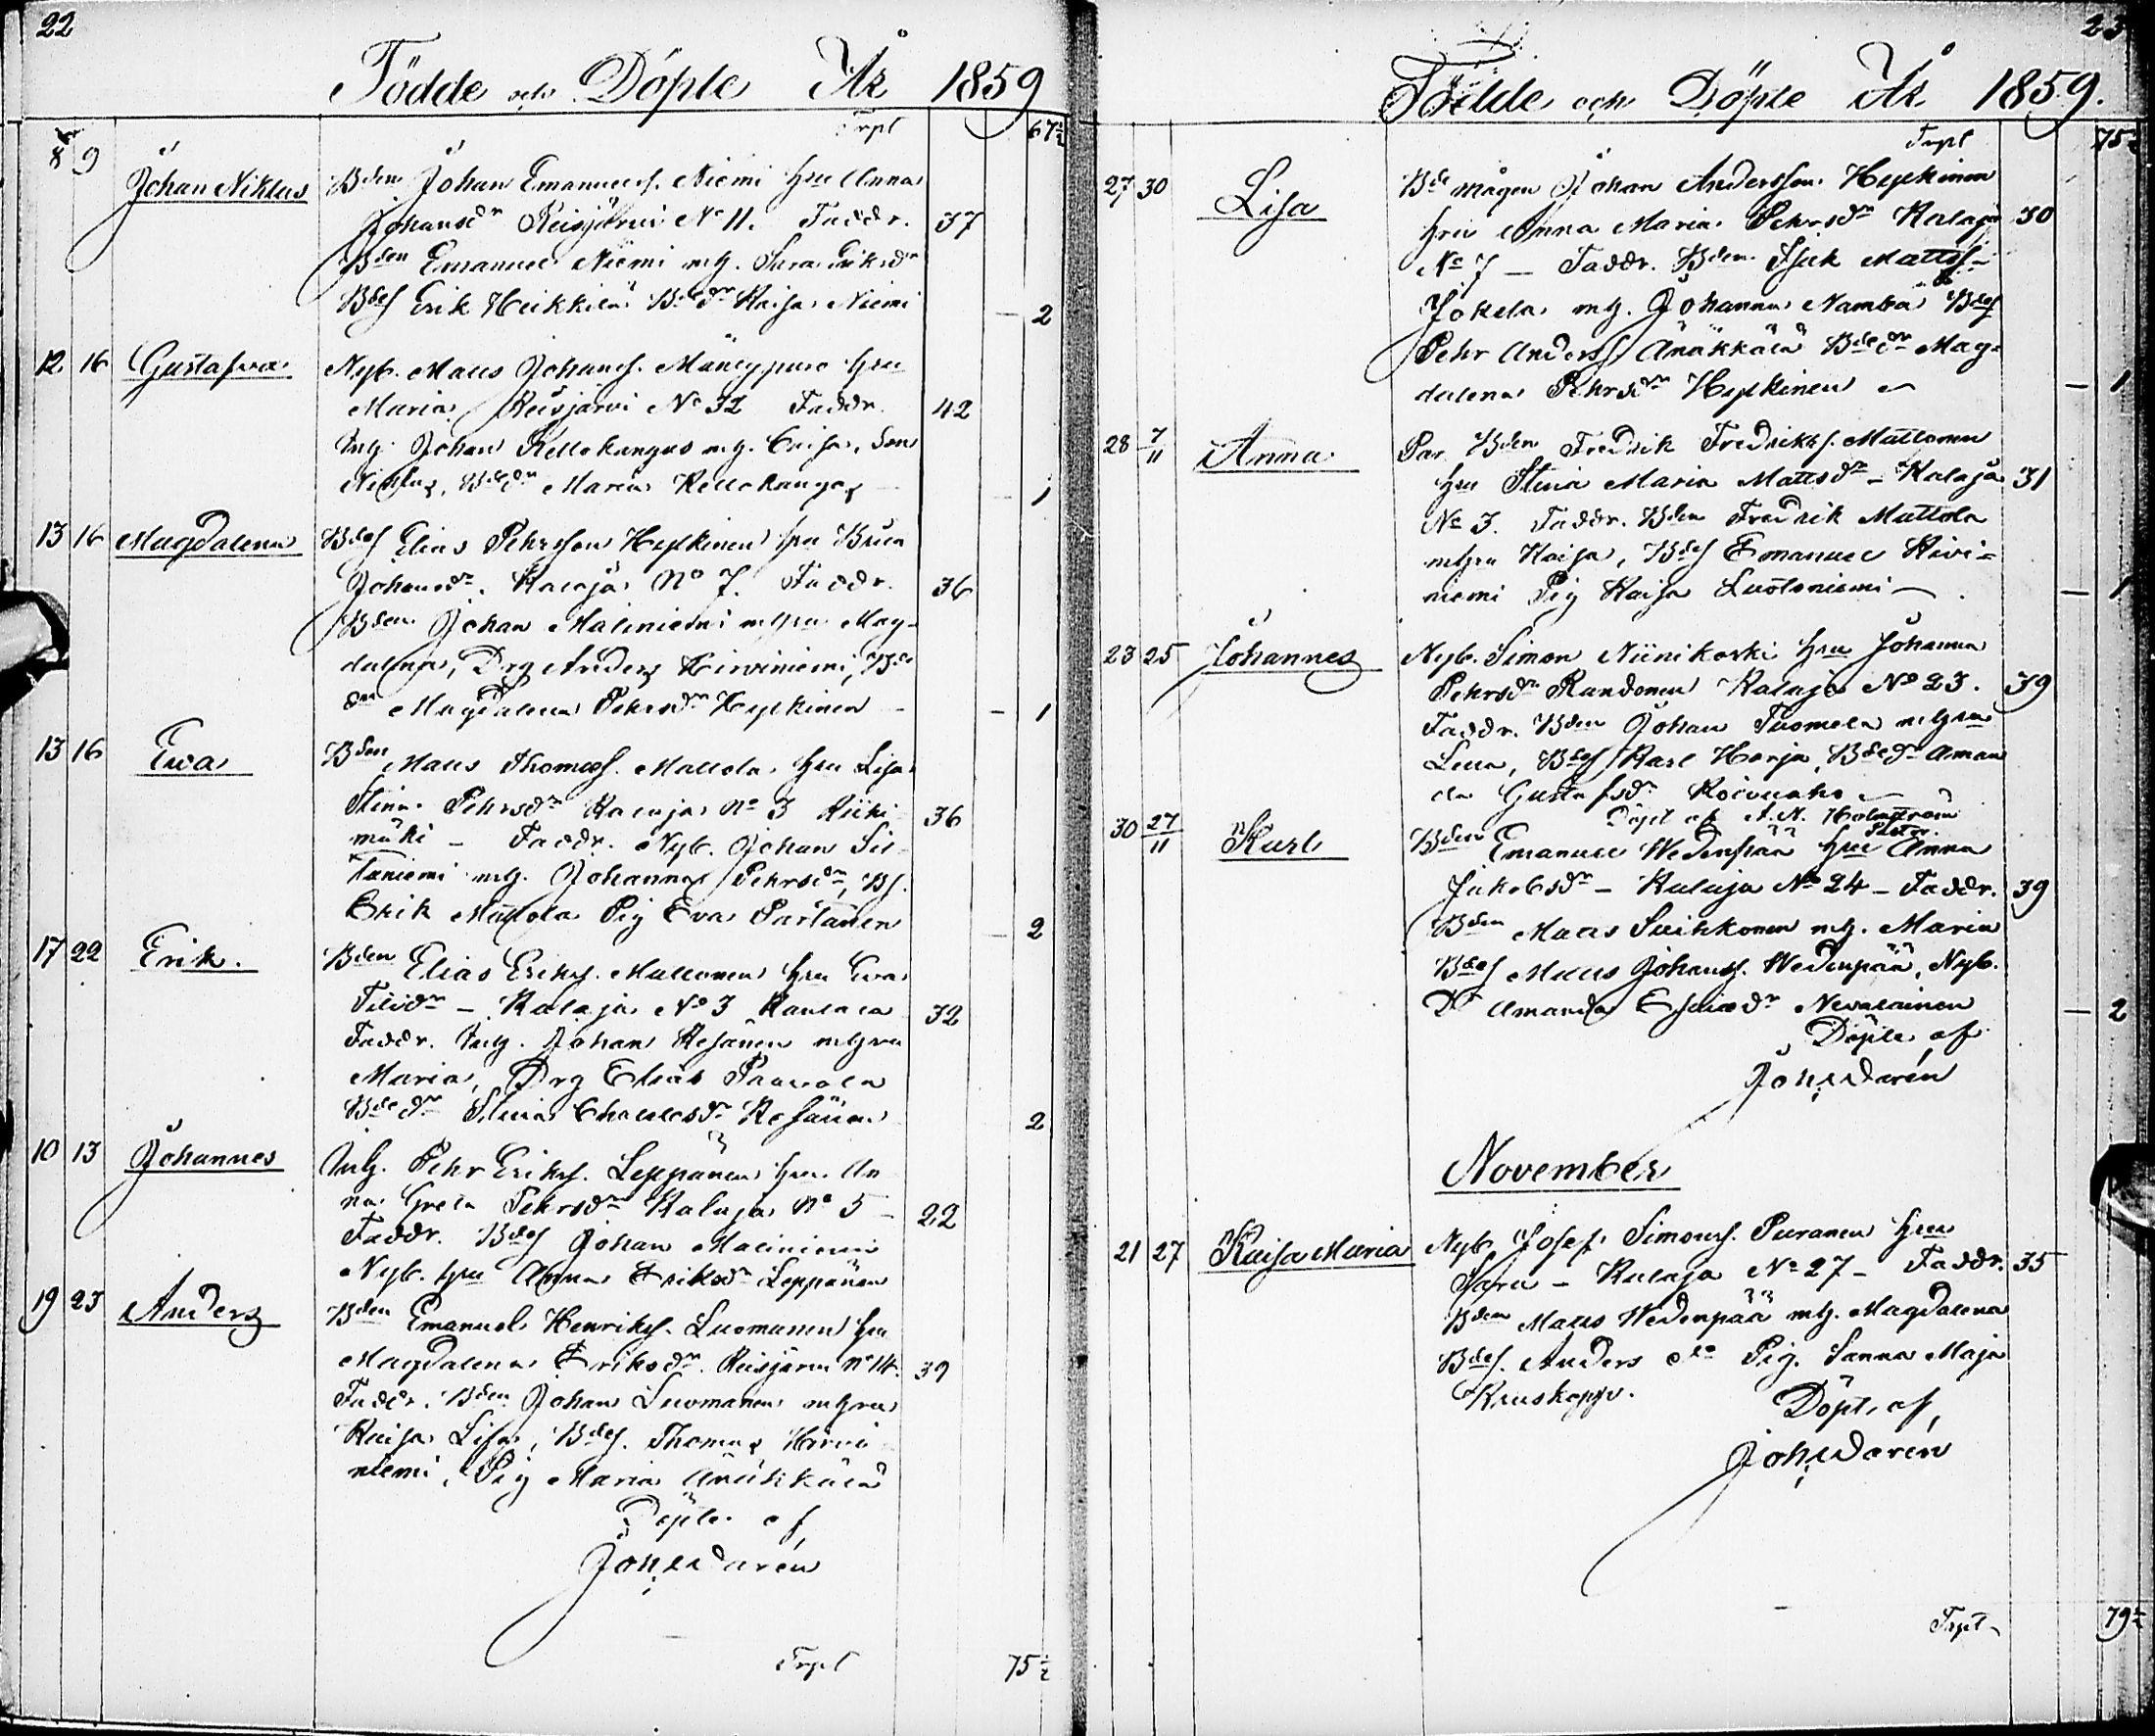 22
Födde och Döpte År 1859
Trpt 67½
8 9 Johan Niklas Bden Johan Emanuelss. Niemi hru Anna
Johansdr Reisjärvi No 11. Faddr. 37
Bden Emanuel Niemi mh. Sara Eriksdr
Bdes Erik Heikkilä Bdedr Kaisa Niemi — 2
12 16 Gustafva Nyb. Matts Johanss. hru
Maria Reisjärvi No 32 Faddr. 42
Inh. Johan Kellokangas mh. Caisa, Son
Niklas, Bdedr Maria Kellokangas — 1
13 16 Magdalena Bdes Elias Pehrsson Hyckinen hru
Johansdr. Kalaja No 7. Faddr. 36
Bden Johan Maliniemi mhru Mag-
dalena, Drg Anders Hirviniemi, Bde
dr Magdalena Pehrsdr Hyckinen — 1
13 16 Eva Bden Matts Thomass. Mattola hru Lisa
Stina Pehrsdr Kalaja No 3 Riihi 36
mäki — Faddr. Nyb. Johan Sil-
taniemi mh. Johanna Pehrsdr, Bs.
Erik Mattola Pig Eva Partanen — 2
17 22 Erik. Bden Elias Eriks. Mattonen hru Eva
— Kalaja No 3 32
Faddr. Inh. Johan Kesänen mhru
Maria, Drg Elias Paavola
Bdedr Stina Kesänen 2
10 13 Johannes Inh. Pehr Eriks. Leppänen hru An
na Greta Pehrsdr Kalaja No 5 — 22
Faddr. Bdes Johan Maliniemi
Nyb. hru Anna Eriksdr Leppänen
19 23 Anders Bden Emanuel Henriks. Luomanen hru
Magdalena Eriksdr. Reisjärvi No 14. 39
Faddr. Bden Johan Luomanen mhru
Kaisa Lisa, Bdes. Thomas Hirvi
niemi, Pig Maria Änäkkälä
Döpte af
Joh. Widarén
Trpt 75½
23
Födde och Döpte År 1859.
Trpt 75½
27 30 Lisa Bdemågen Johan Andersson Hyckinen
hru Anna Maria Pehrsdr Kalaja 30
No 7 — Faddr. Bden Isak Mattss-
Jokela mh. Johanna Bdes
Pehr Anderss. Änäkkälä Bdedr Mag-
dalena Pehrsdr Hyckinen — 1
28 7/11 Anna Par. Bden Fredrik Fredrikss. Mattonen
hru Stina Maria Mattsdr — Kalaja 31
No 3. Faddr. Bden Fredrik Mattola
mhru Kaisa, Bdes Emanuel Hirvi=
niemi Pig Kaisa Luotoniemi — 1
23 25 Johannes Nyb. Simon Niinikoski hru Johanna
Pehrsdr Kalaja No 23. 39
Faddr. Bden Johan Tuomela mhru
Lena, Bdes Karl Harju, Bdedr Aman
da Gustafsdr Koivuaho —
Döpt af A. N. Holmström
Pastor.
30 27/11 Karl Bden Emanuel Wedenpää hru Anna
Jakobsdr — Kalaja No 24 — Faddr. 39
Bden Matts Suihkonen mh. Maria
Bdes Matts Johanss. Wedenpää, Nyb.
Dr Amanda Esaiædr Nevalainen — 2
Döpte af
Joh. Widarén
November
21 27 Kaisa Maria Nyb. Josef Simonss. Puranen hru
Sara — Kalaja No 27 — Faddr. 35
Bden Matts Wedenpää mh. Magdalena
Bdes. Anders do Pig. Sanna Maja
Kruskopf.
Döpt af,
Joh. Widarén
Trpt 79½